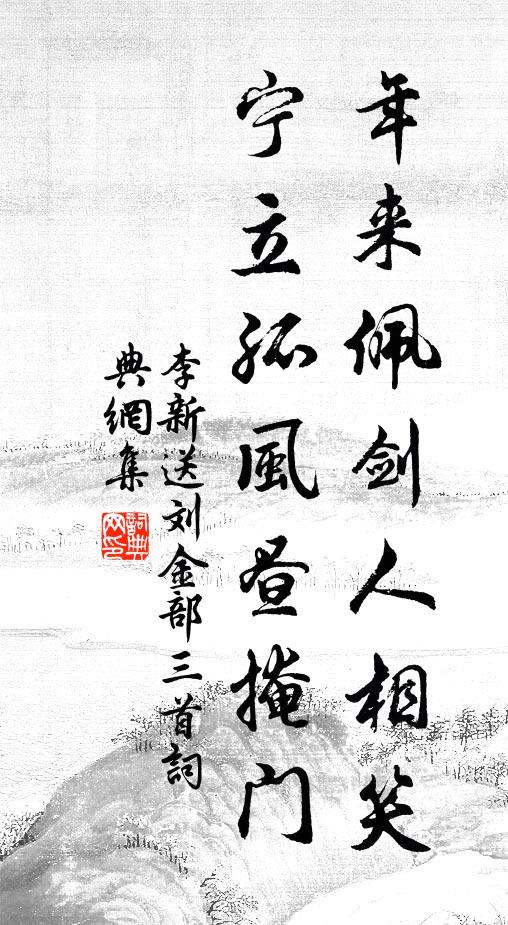 年来佩剑人相笑
宁立孤風昼掩门
李新送刘金部三首詞
典網集
詞典
网印